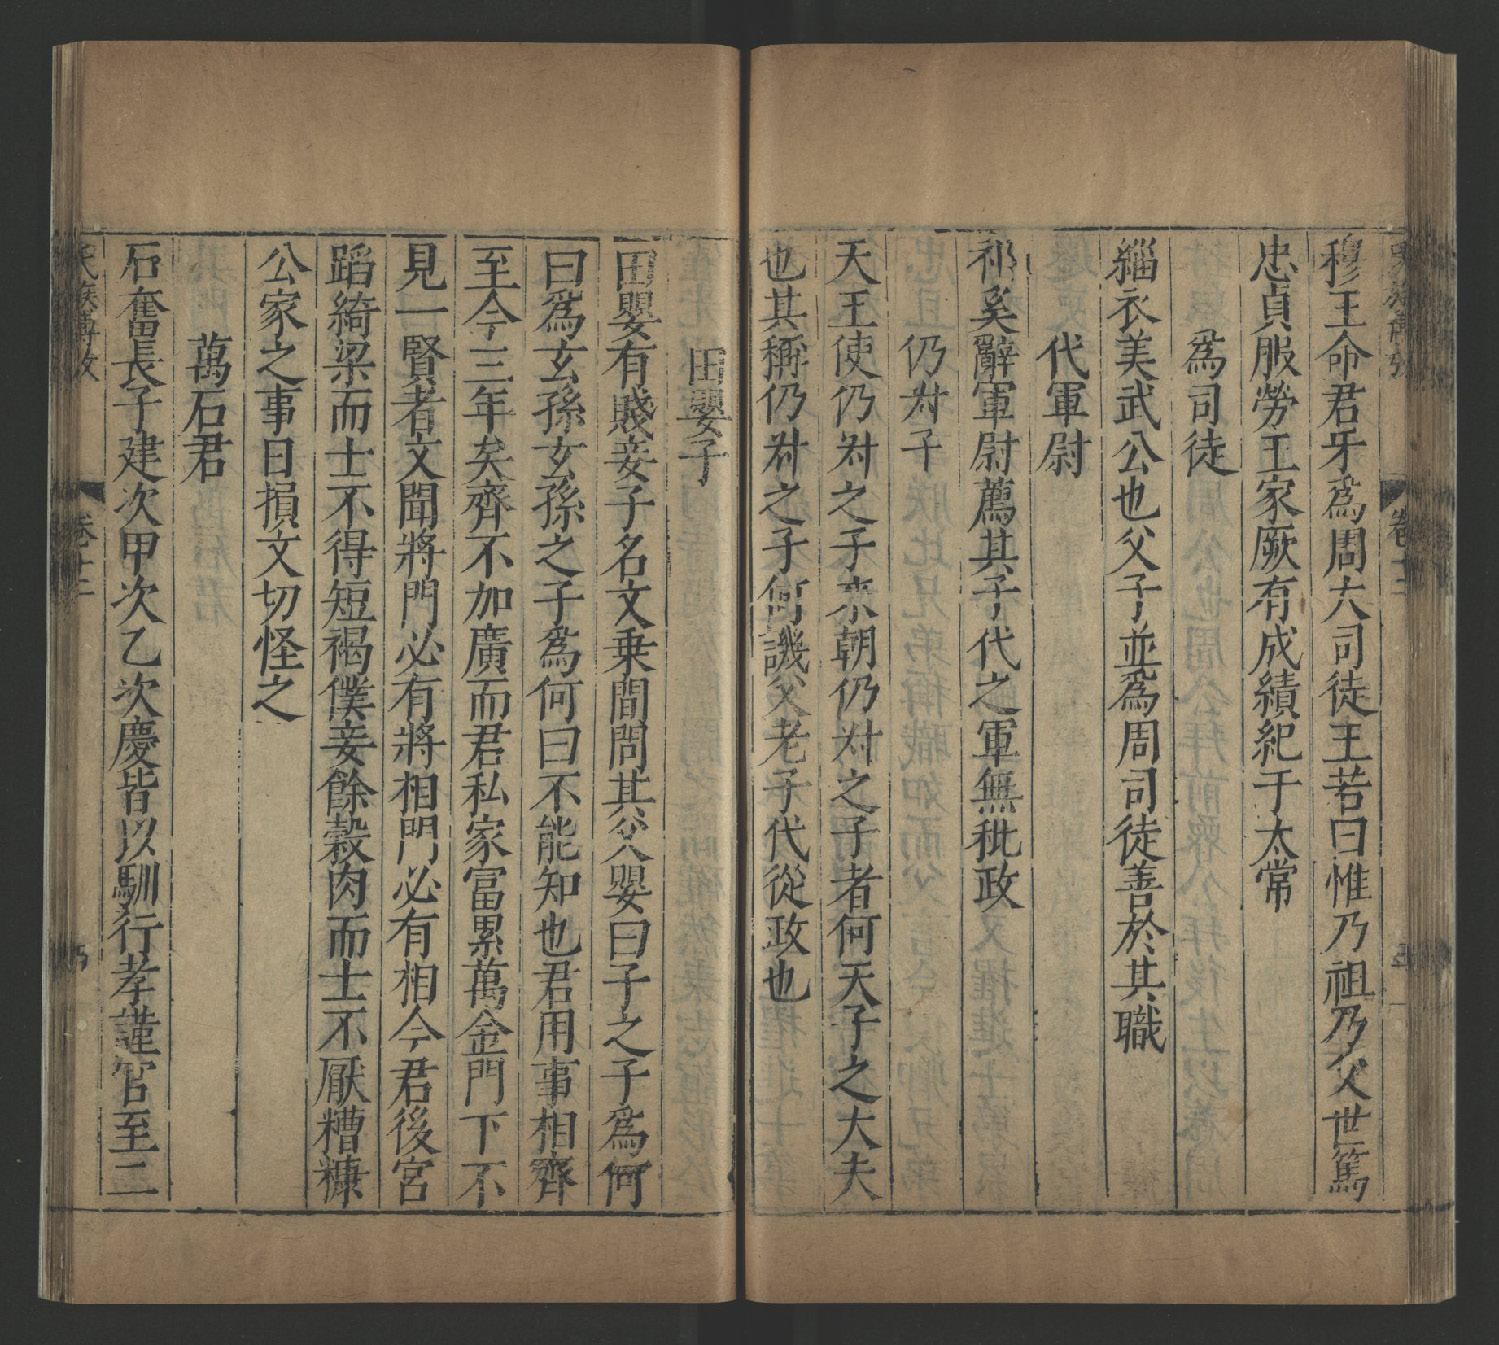 穆王命君牙爲周大司徒王若曰惟乃祖乃父世篤
忠貞服勞王家厥有成績紀于太常
爲司徒
緇衣美武公也父子並爲周司徒善於其職
代軍尉
祁奚辭軍尉薦其子代之軍無秕政
仍叔子
天王使仍叔之子來朝仍叔之子者何天子之大夫
也其稱仍叔之子何譏父老子代從政也
田嬰子
田嬰有賤妾子名文乗間問其父嬰曰子之子爲何
曰爲玄孫玄孫之子爲何曰不能知也君用事相齊
至今三年矣齊不加廣而君私家富累萬金門下不
見一賢者文聞將門必有將相門必有相今君後宮
蹈綺梁而士不得短褐僕妾餘穀肉而士不厭糟糠
公家之事日損文切怪之
萬石君
石奮長子建次甲次乙次慶皆以馴行孝謹官至二
卷十二